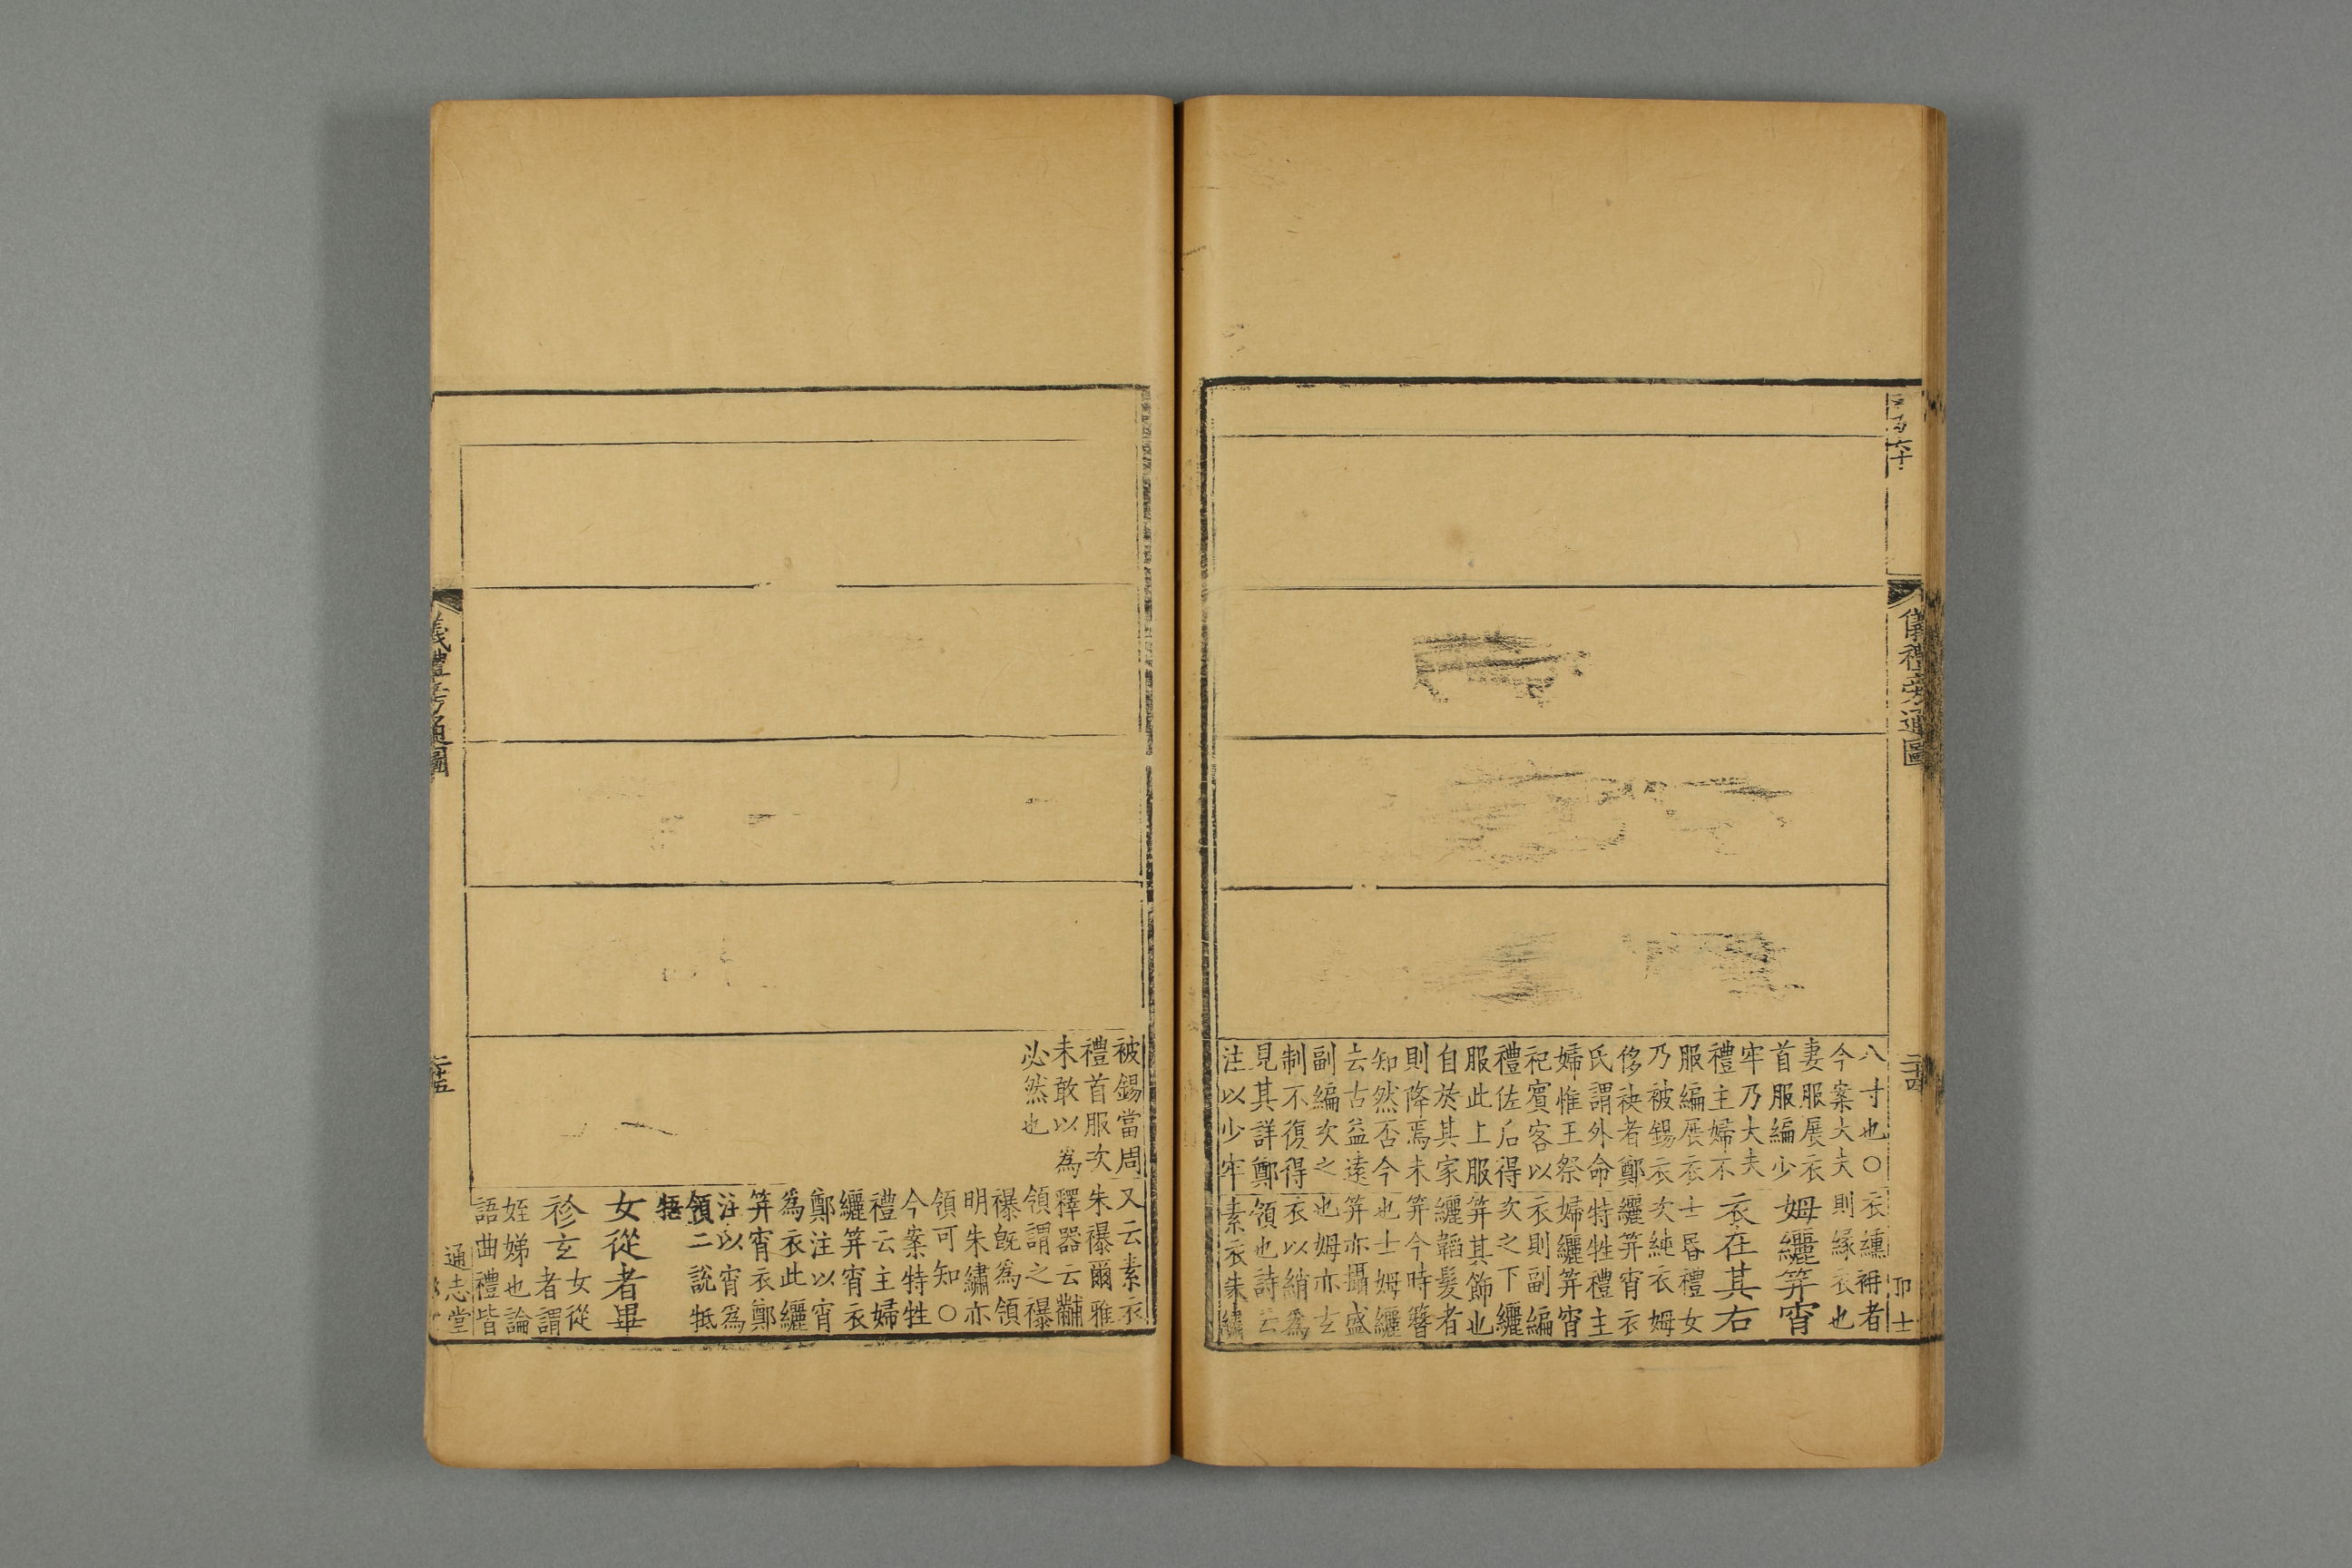 儀禮旁通圖
二十四
八寸也○
今案大夫
妻服展衣
首服編少
牢乃大夫
禮主婦不
服編展衣
乃被錫衣
侈袂者鄭
氏謂外命
婦惟王祭
祀賓客以
禮佐后得
服此上服
自於其家
則降焉未
知然否今
云古益遠
副編次之
制不復得
見其詳鄭
注以少牢
被錫當周
禮首服次
未敢以為
必然也
衣纁袡者
則緣衣也
姆纚笄宵
衣在其右
士昏禮女
次純衣姆
纚笄宵衣
特牲禮主
婦纚笄宵
衣則副編
次之下纚
笄其飾也
纚韜髮者
笄今時簪
也士姆纚
笄亦攝盛
也姆亦玄
衣以綃為
領也詩云
素衣朱繡
又云素衣
朱襮爾雅
釋器云黼
領謂之襮
襮旣為領
明朱繡亦
領可知○
今案特牲
禮云主婦
纚笄宵衣
鄭注以宵
為衣此纚
笄宵衣鄭
注以宵為
領二說牴
牾
女從者畢
袗玄
女從
者謂
姪娣也論
語曲禮皆
儀禮旁通圖
二十五
通志堂